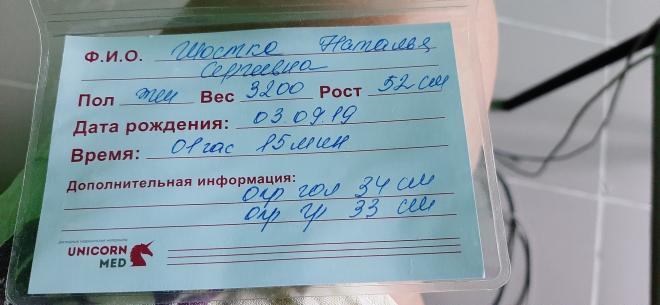 Ф.И.О. Шостко Наталья
Сергеевна
Пол жен Вес 3200 Рост 52 см
Дата рождения: 03.09.19
Время: 01 час 15 мин
Дополнительная информация:
окр гол 34 см
окр гр 33 см
UNICORN
MED